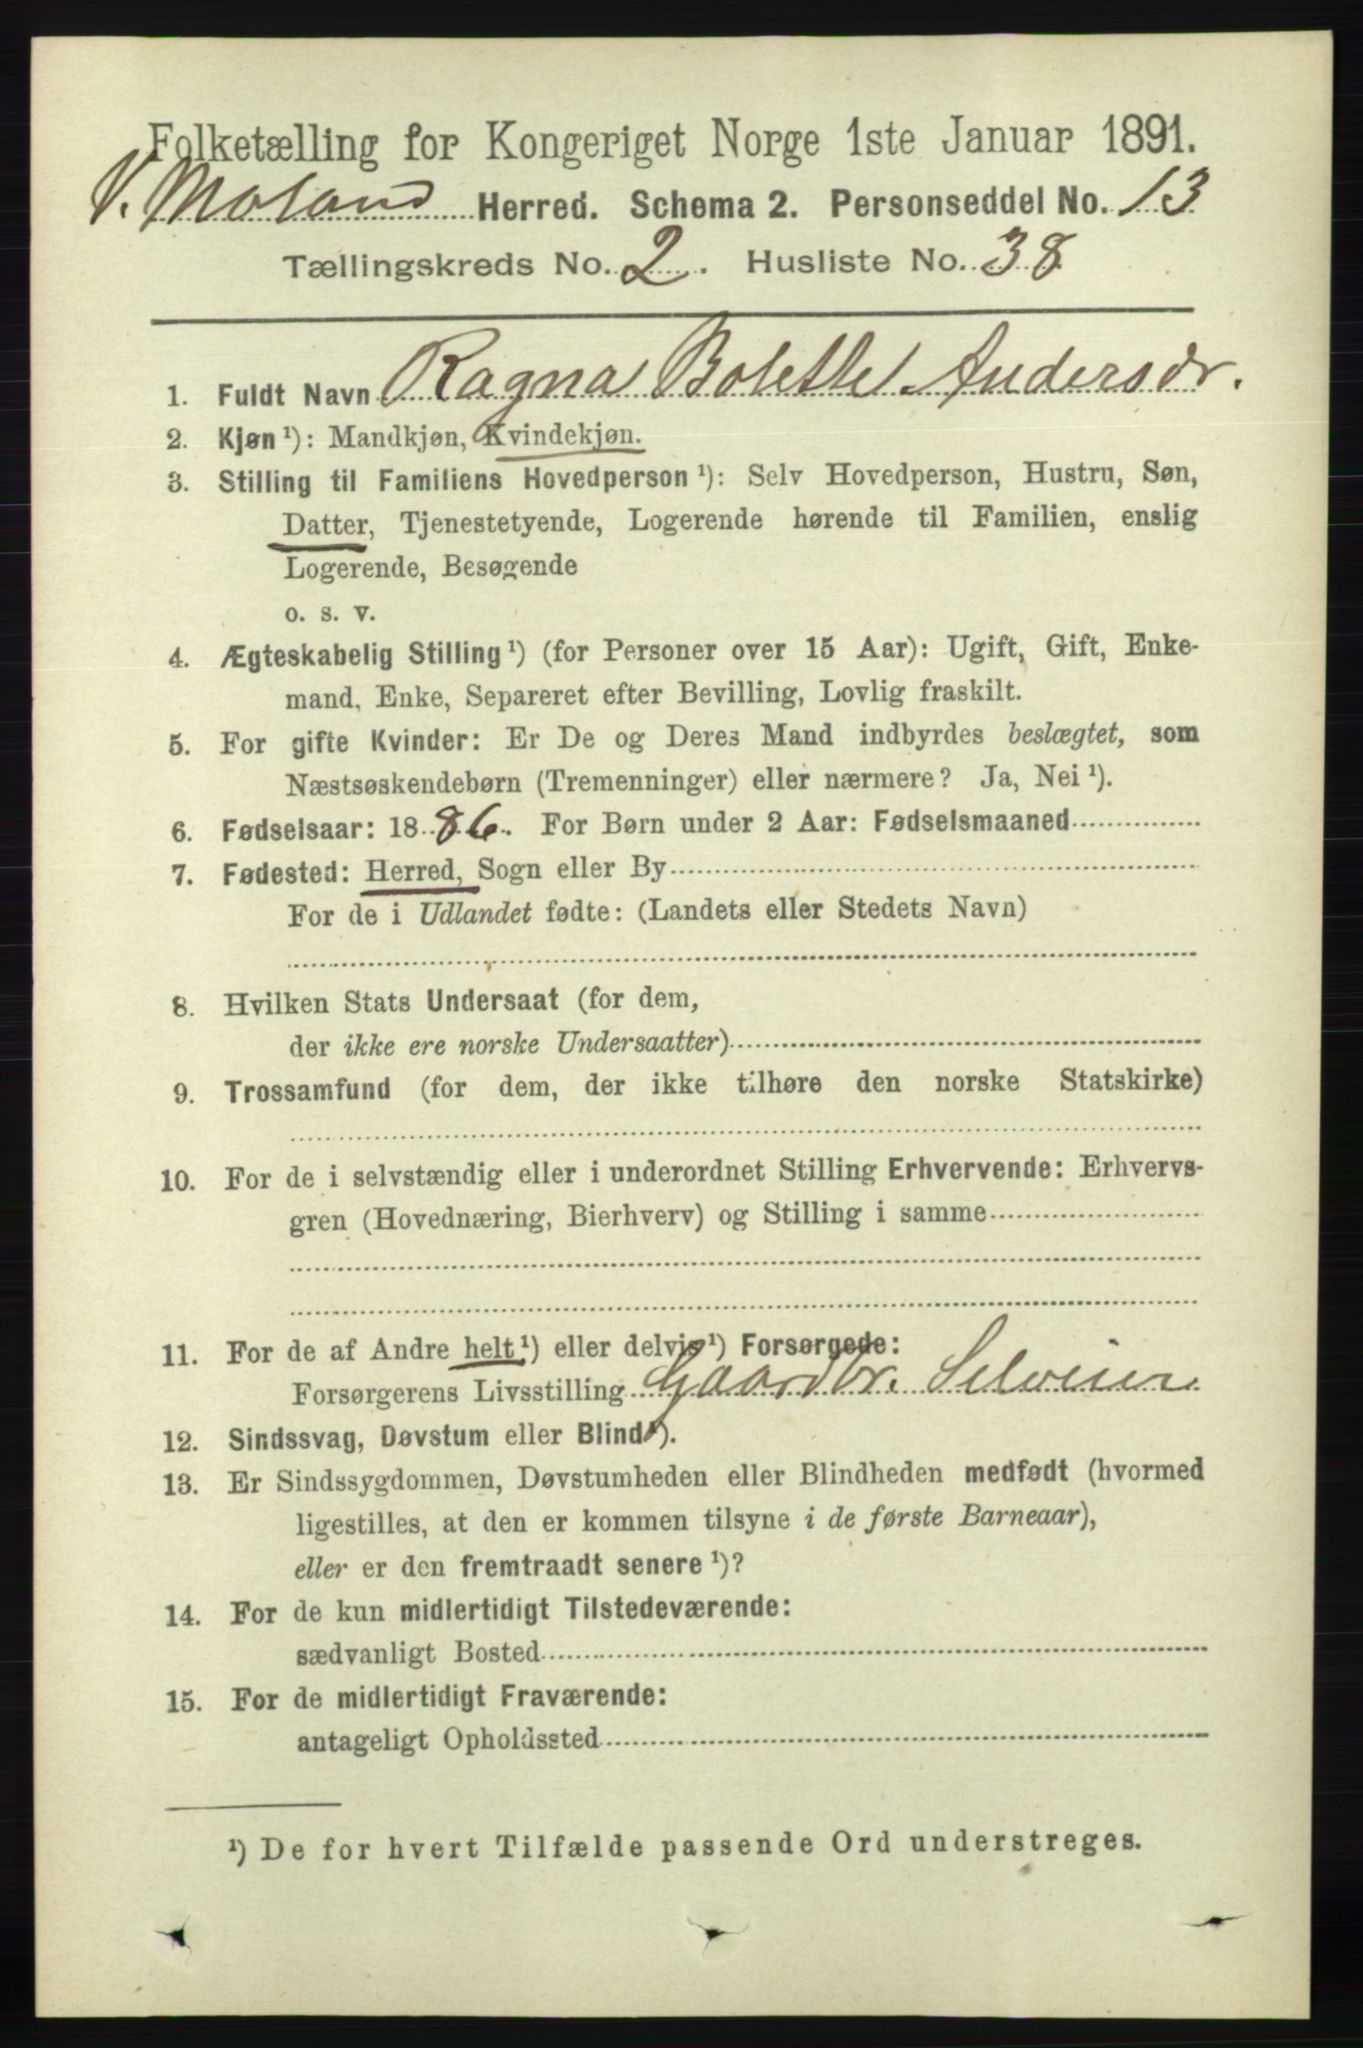 Folketælling for Kongeriget Norge 1ste Januar 1891.
V. Moland Herred. Schema 2. Personseddel No. 13
Tællingskreds No. 2. Husliste No. 38
1. Fuldt Navn Ragna Bolette Andersdr.
2. Kjøn ¹): Mandkjøn, Kvindekjøn.
3. Stilling til Familiens Hovedperson ¹): Selv Hovedperson, Hustru, Søn,
Datter, Tjenestetyende, Logerende hørende til Familien, enslig
Logerende, Besøgende
o. s. v.
4. Ægteskabelig Stilling ¹) (for Personer over 15 Aar): Ugift, Gift, Enke-
mand, Enke, Separeret efter Bevilling, Lovlig fraskilt.
5. For gifte Kvinder: Er De og Deres Mand indbyrdes beslægtet, som
Næstsøskendebørn (Tremenninger) eller nærmere? Ja, Nei ¹).
6. Fødselsaar: 1886. For Børn under 2 Aar: Fødselsmaaned
7. Fødested: Herred, Sogn eller By
For de i Udlandet fødte: (Landets eller Stedets Navn)
8. Hvilken Stats Undersaat (for dem,
der ikke ere norske Undersaatter)
9. Trossamfund (for dem, der ikke tilhøre den norske Statskirke)
10. For de i selvstændig eller i underordnet Stilling Erhvervende: Erhvervs-
gren (Hovednæring, Bierhverv) og Stilling i samme
11. For de af Andre helt ¹) eller delvis ¹) Forsørgede:
Forsørgerens Livsstilling Gaardbr. Selveier
12. Sindssvag, Døvstum eller Blind ¹).
13. Er Sindssygdommen, Døvstumheden eller Blindheden medfødt (hvormed
ligestilles, at den er kommen tilsyne i de første Barneaar),
eller er den fremtraadt senere ¹)?
14. For de kun midlertidigt Tilstedeværende:
sædvanligt Bosted
15. For de midlertidigt Fraværende:
antageligt Opholdssted
¹) De for hvert Tilfælde passende Ord understreges.